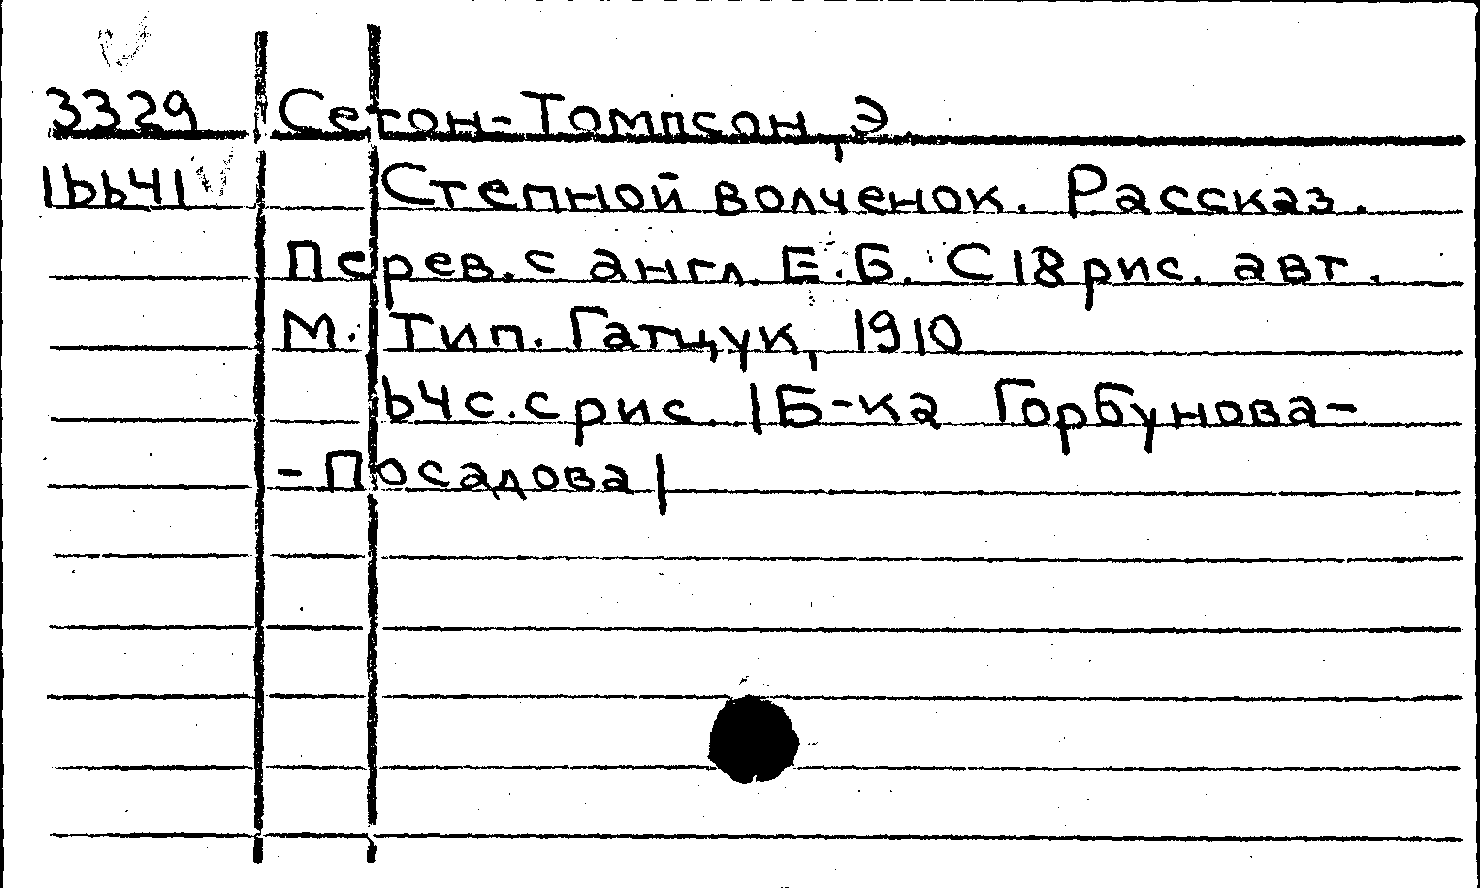 3329 Сетон-Томпсон, Э
16641 Степной волченок. Рассказ.
Перев. с англ. Е.Б. С 18 рис. авт.
М. Тип. Гатцук, 1910
64с. с рис. |Б-ка Горбунова-
-Посадова|